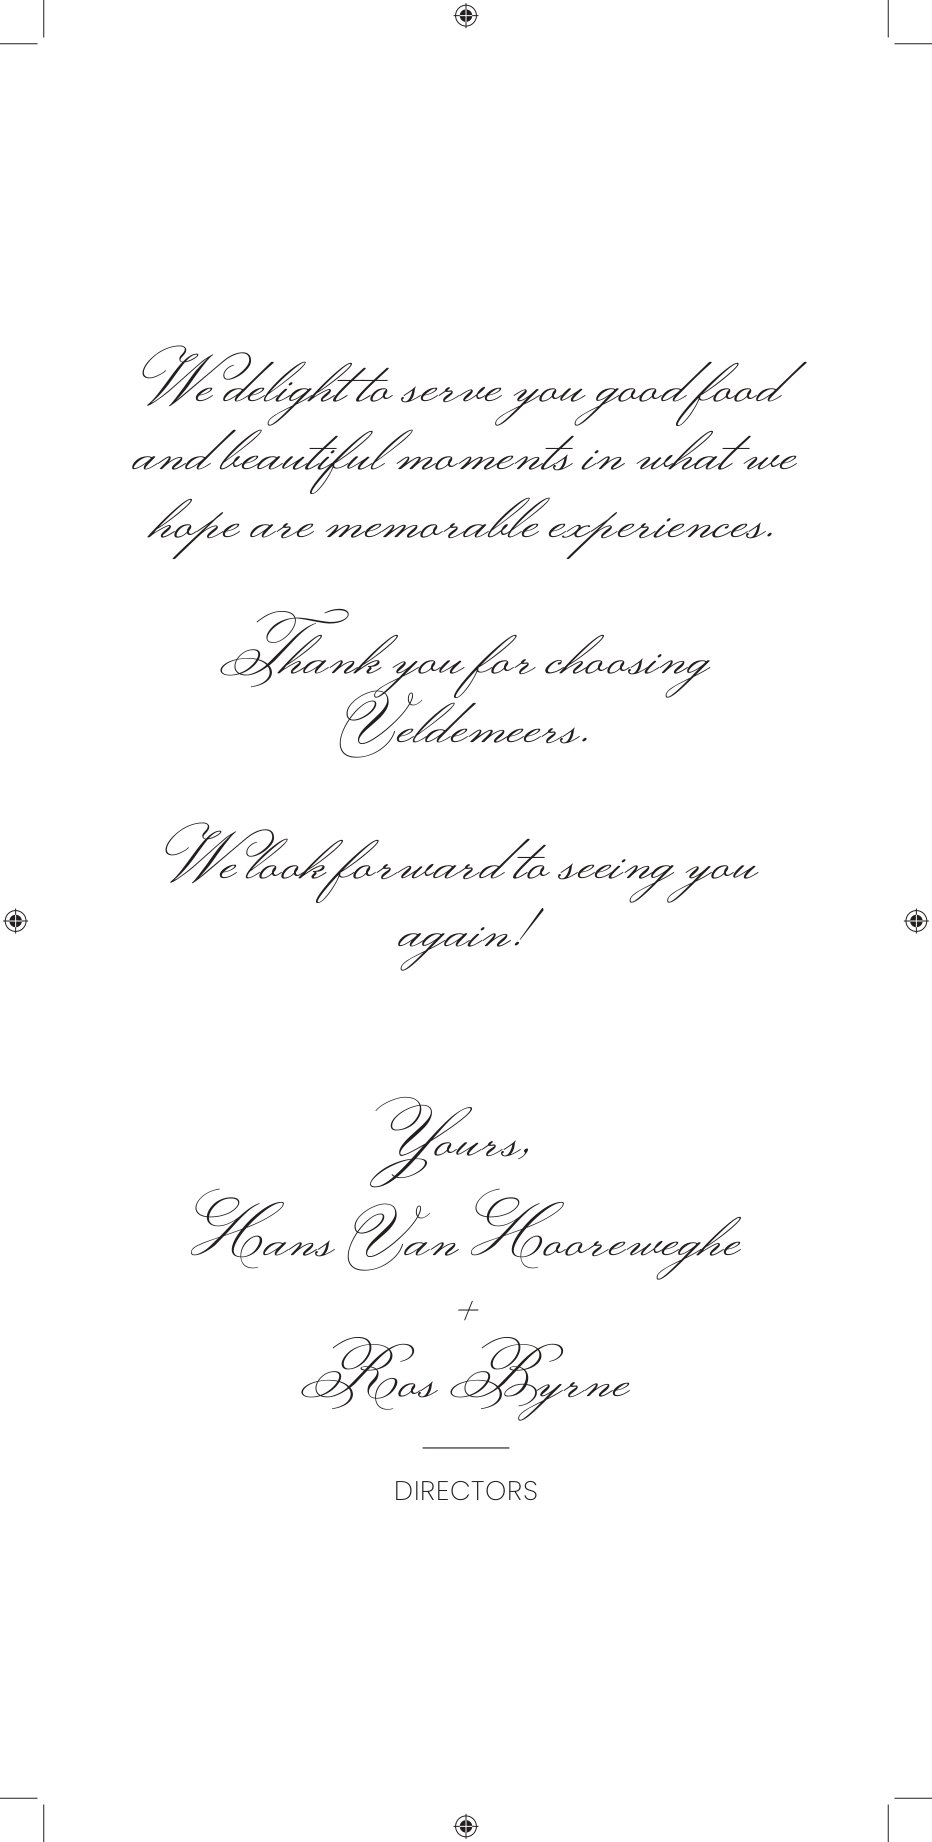 We delight to serve you good food
and beautiful moments in what we
hope are memorable experiences.
Thank you for choosing
Veldemeers.
We look forward to seeing you
again!
Yours,
Hans Van Hooreweghe
+
Ros Byrne
DIRECTORS